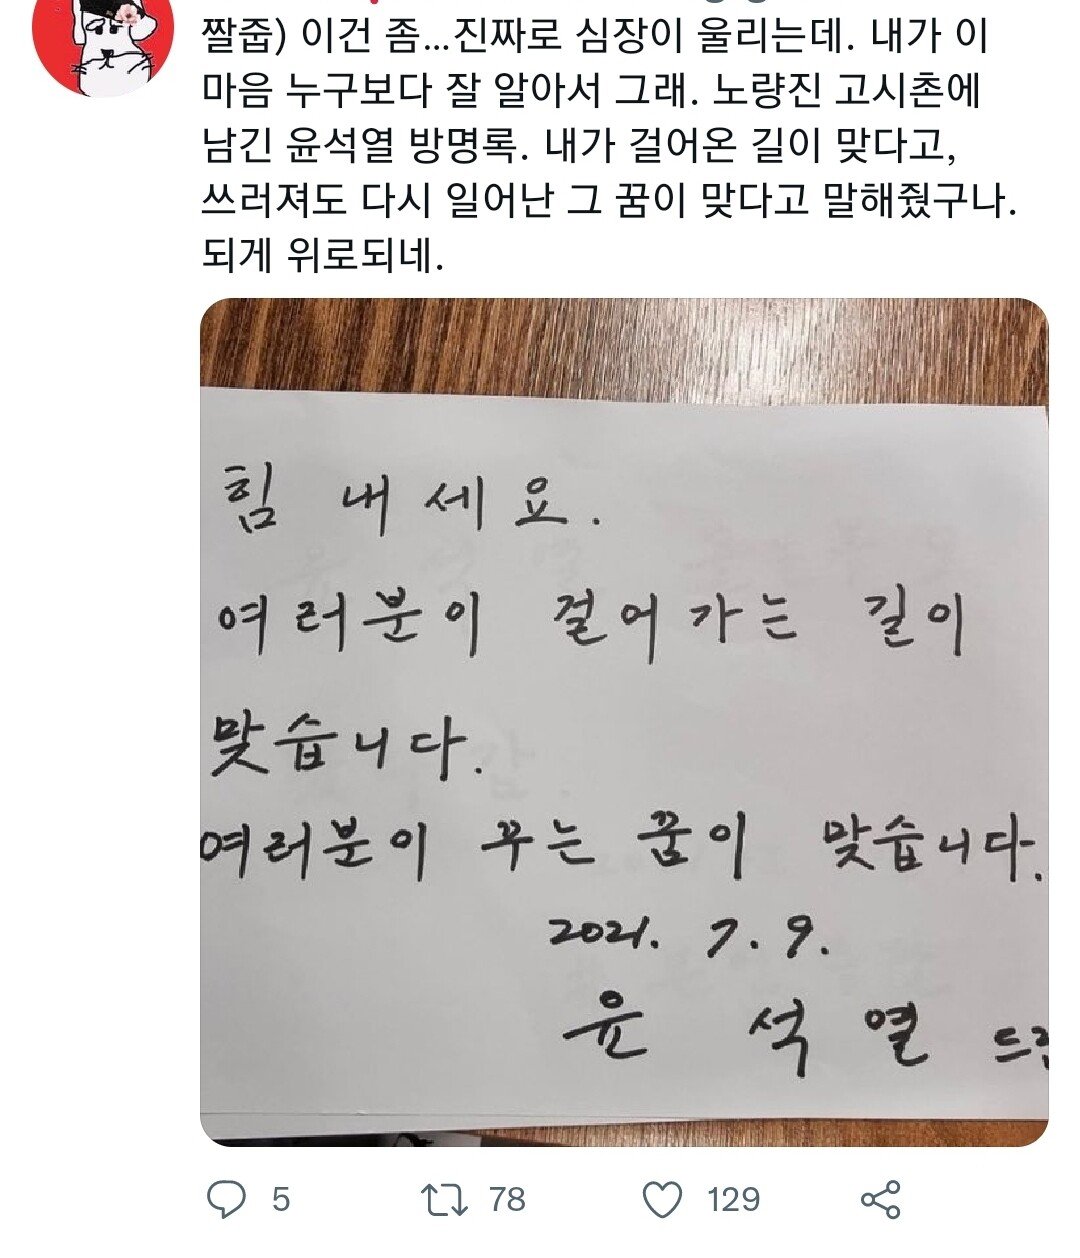 짤줍) 이건 좀...진짜로 심장이 울리는데. 내가 이
마음 누구보다 잘 알아서 그래. 노량진 고시촌에
남긴 윤석열 방명록. 내가 걸어온 길이 맞다고,
쓰러져도 다시 일어난 그 꿈이 맞다고 말해줬구나.
되게 위로되네.
힘 내세요.
여러분이 걸어가는 길이
맞습니다.
여러분이 꾸는 꿈이 맞습니다.
2021. 7. 9.
윤 석 열
5 78 129